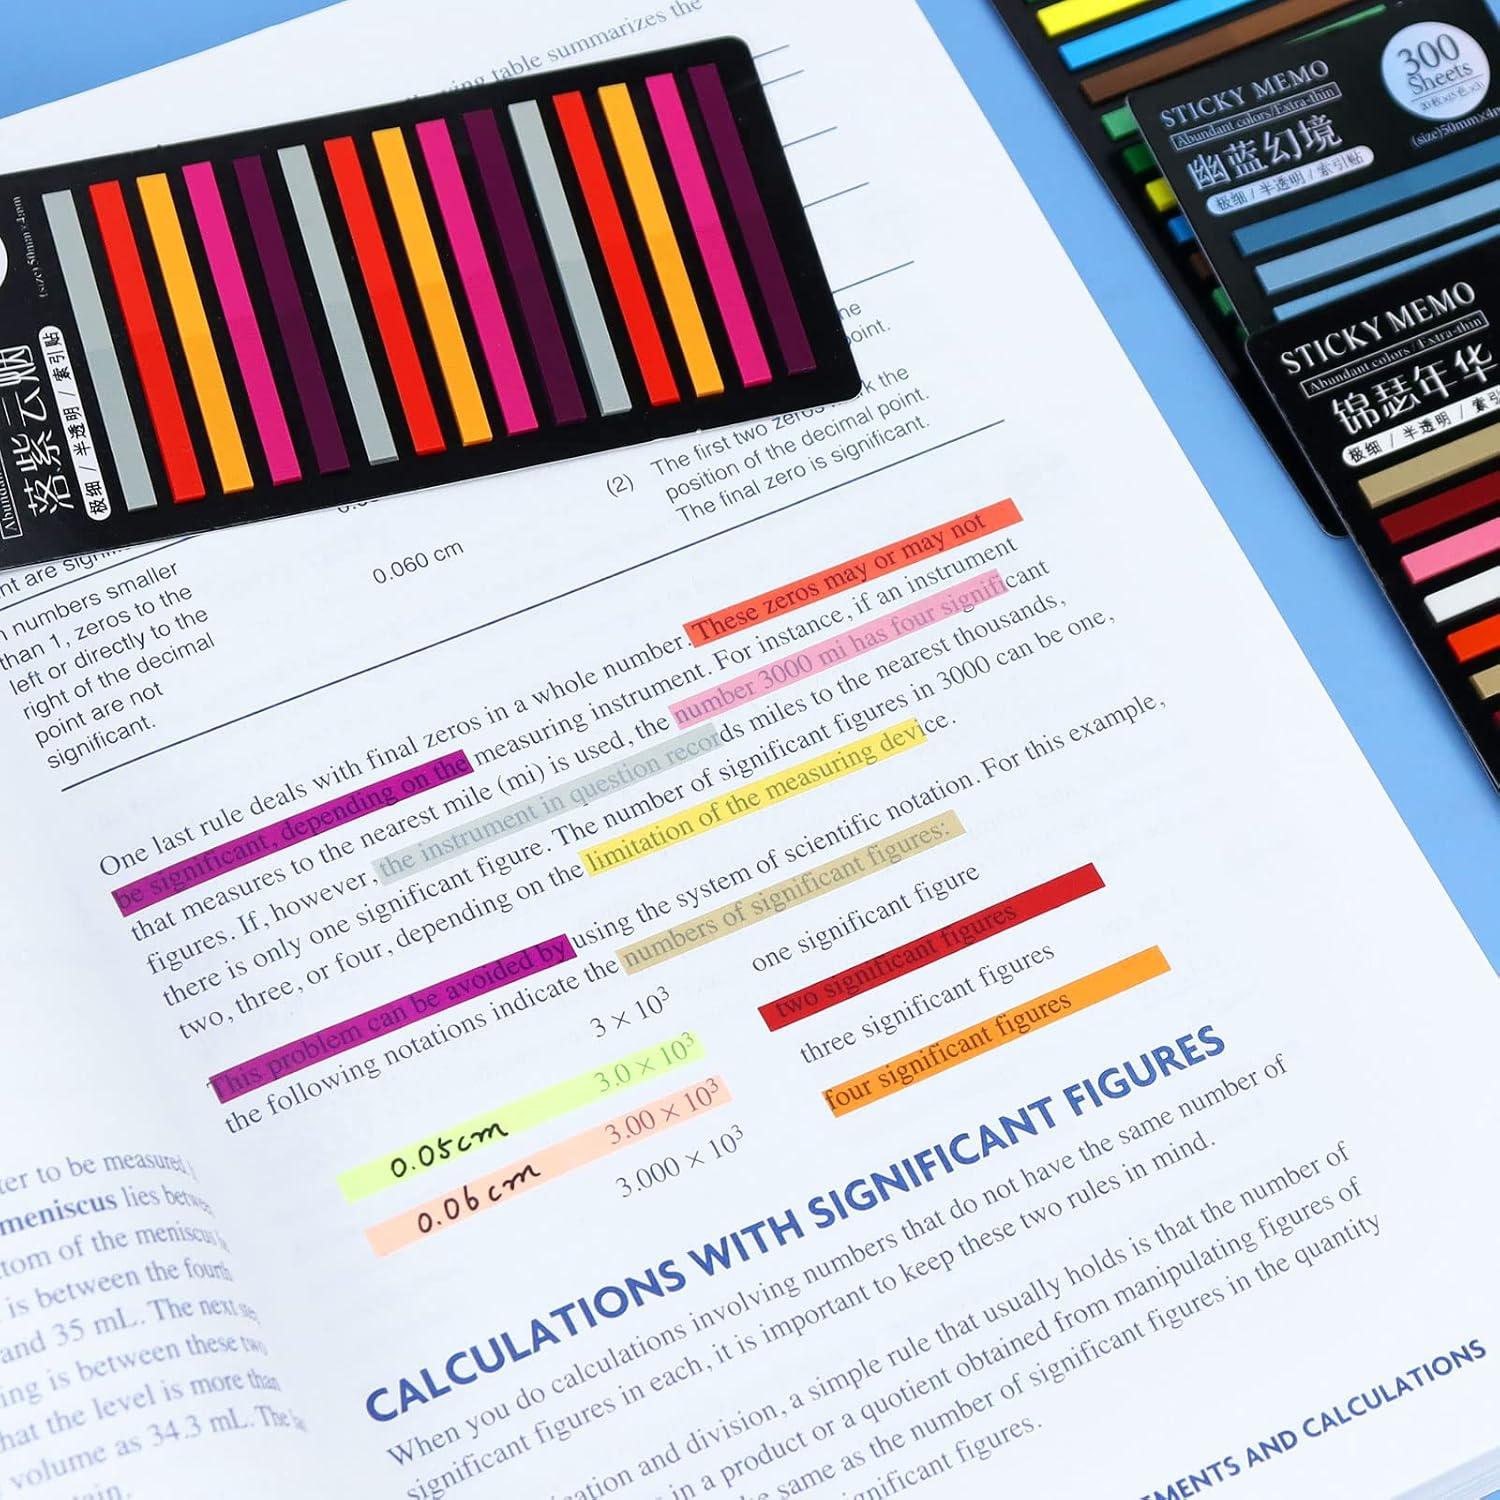 STICKY MEMO
Abundant colors/Extra-thin
幽蓝幻境
极细 / 半透明 / 索引贴
300
Sheets
(size)50mm×4m
STICKY MEMO
Abundant colors / Extra-thin
锦瑟年华
极细 / 半透明 / 索引
落紫云烟
极细 / 半透明 / 索引贴
(size)50mm×4mm
table summarizes the
point.
(2)
The first two zeros mark the
position of the decimal point.
The final zero is significant.
0.060 cm
numbers smaller
than 1, zeros to the
left or directly to the
right of the decimal
point are not
significant.
One last rule deals with final zeros in a whole number. These zeros may or may not
be significant, depending on the measuring instrument. For instance, if an instrument
that measures to the nearest mile (mi) is used, the number 3000 mi has four significant
figures. If, however, the instrument in question records miles to the nearest thousands,
there is only one significant figure. The number of significant figures in 3000 can be one,
two, three, or four, depending on the limitation of the measuring device.
This problem can be avoided by using the system of scientific notation. For this example,
the following notations indicate the numbers of significant figures:
3 × 10³ one significant figure
3.0 × 10³ two significant figures
3.00 × 10³ three significant figures
3.000 × 10³ four significant figures
0.05cm
0.06cm
CALCULATIONS WITH SIGNIFICANT FIGURES
When you do calculations involving numbers that do not have the same number of
significant figures in each, it is important to keep these two rules in mind.
and division, a simple rule that usually holds is that the number of
in a product or a quotient obtained from manipulating figures of
same as the number of significant figures in the quantity
significant figures.
ter to be measured
meniscus lies between
tom of the meniscus
is between the fourth
and 35 mL. The next
ing is between these two
hat the level is more than
volume as 34.3 mL. The
EMENTS AND CALCULATIONS